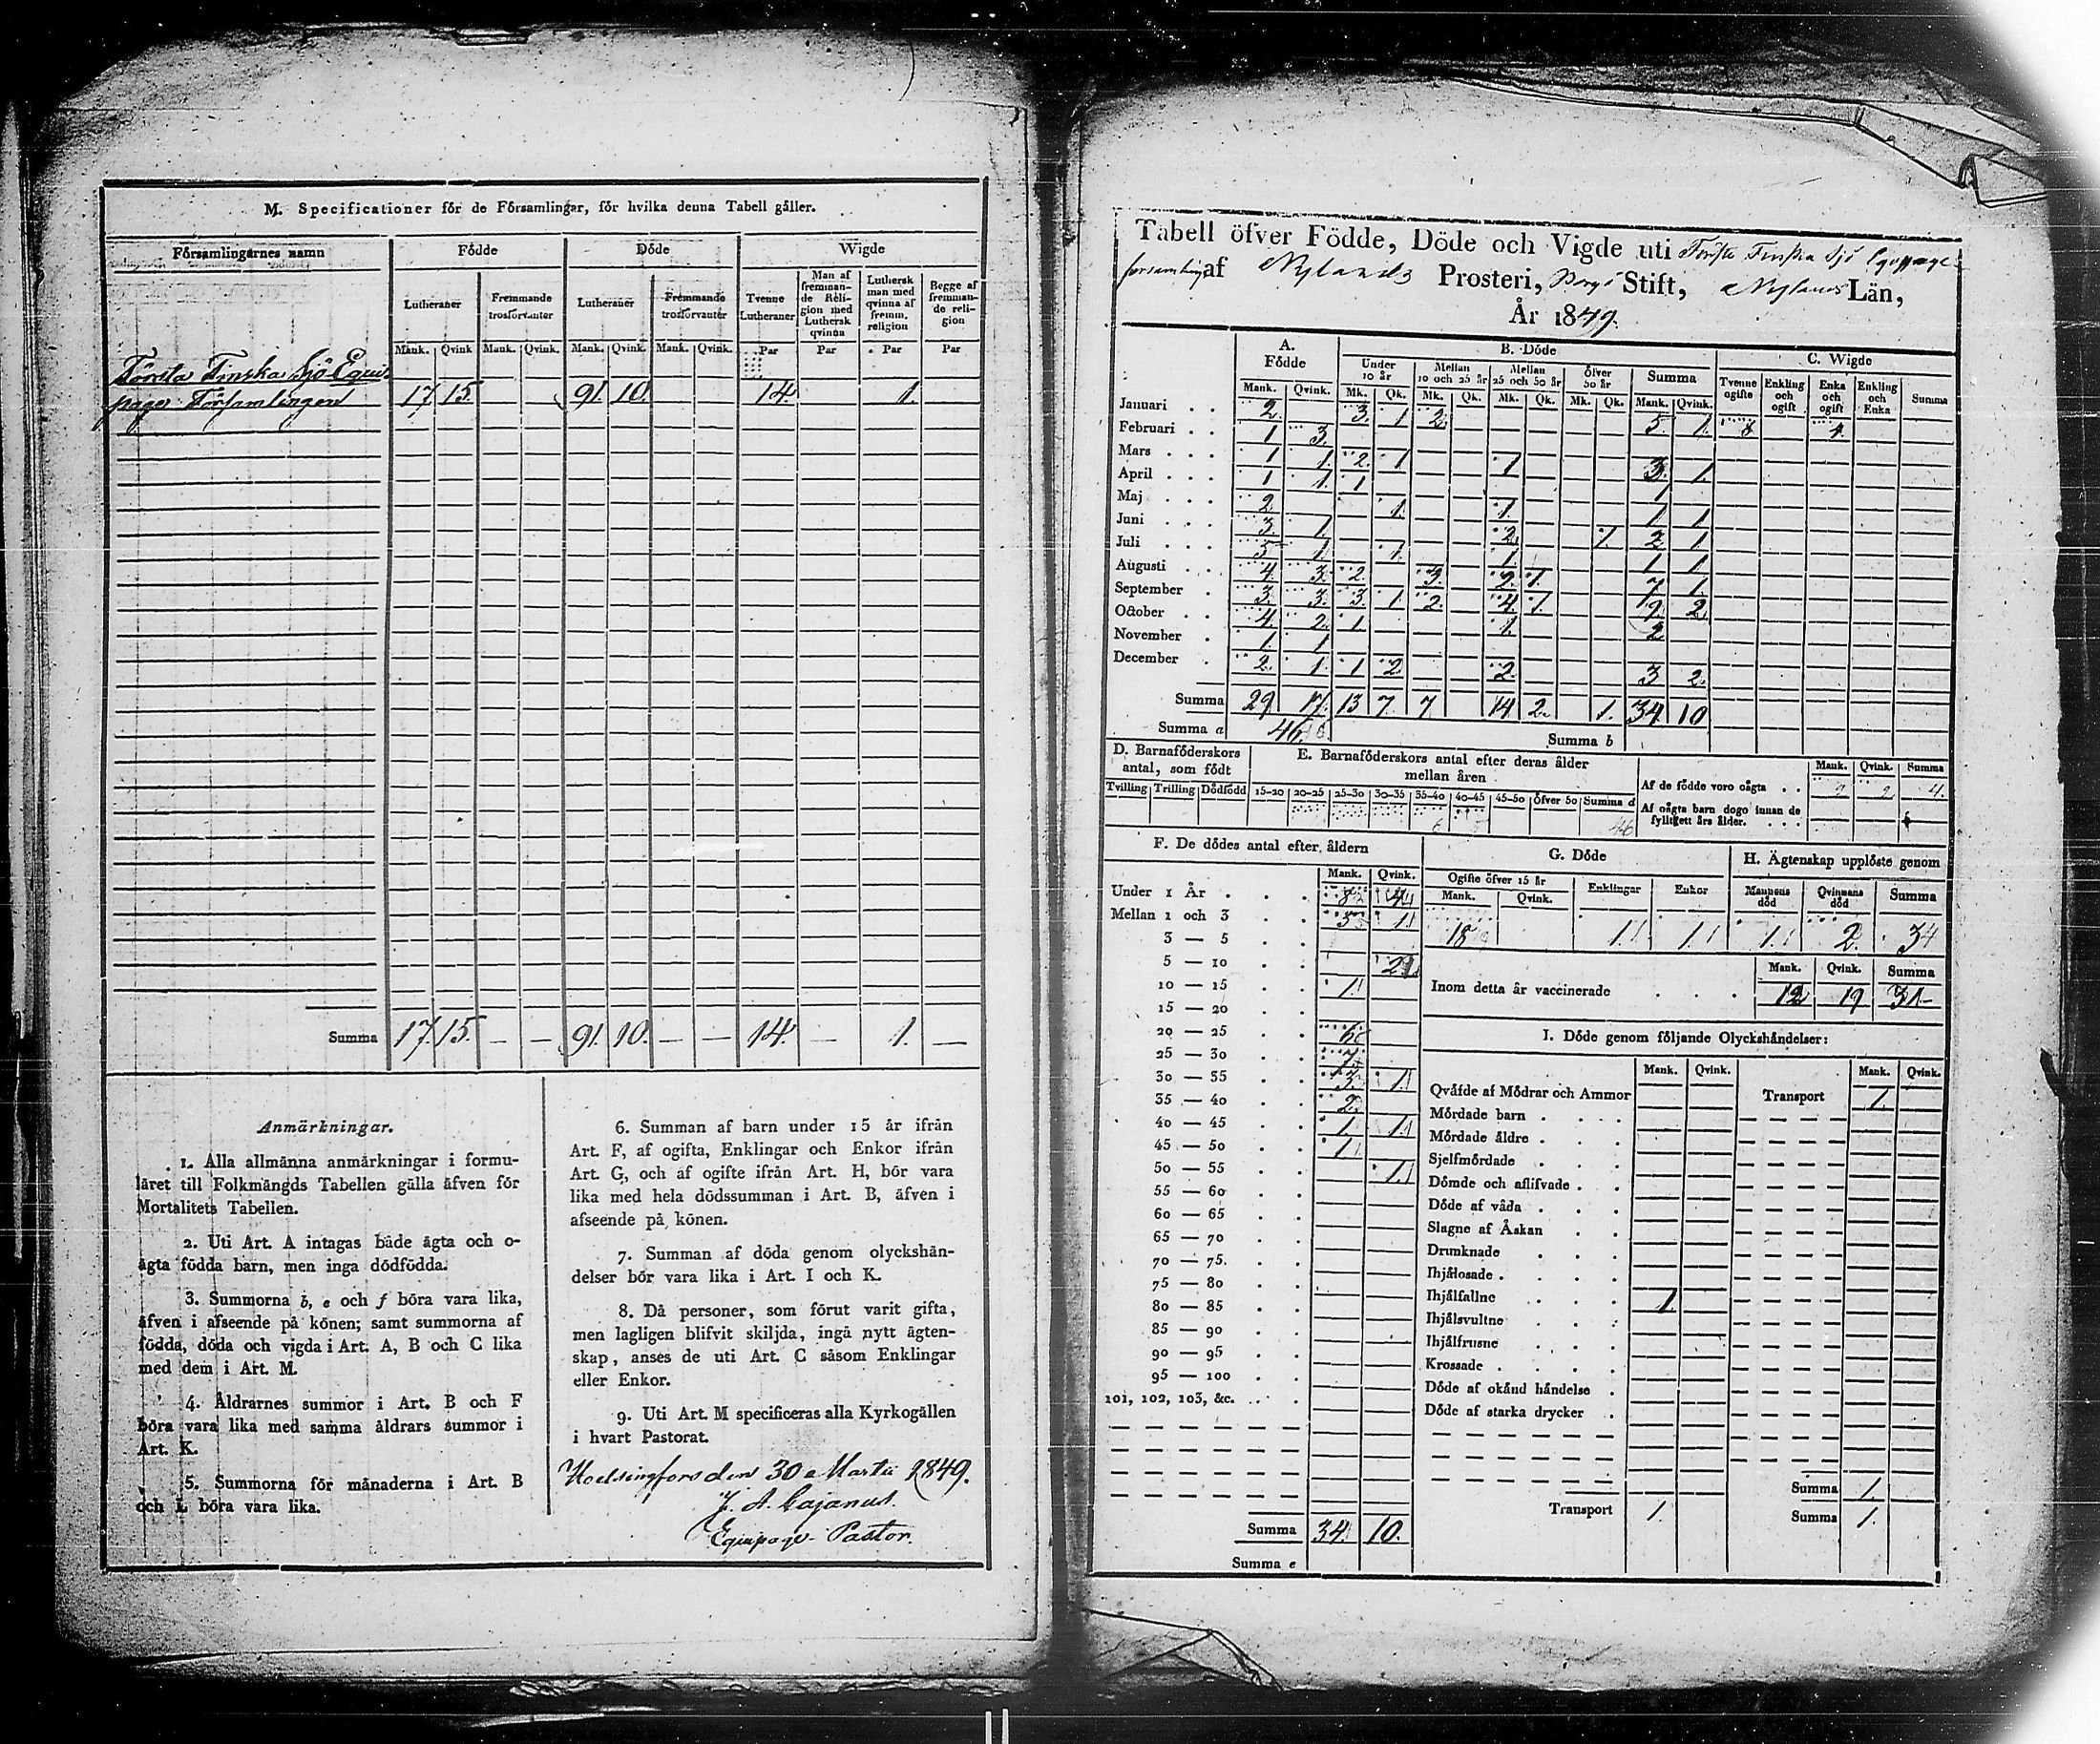 M. Specificationer för de Församlingar, för hvilka denna Tabell gäller.
Församlingarnes namn
Födde
Döde
Wigde
Lutheraner
Fremmande trosförvanter
Lutheraner
Fremmande trosförvanter
Tvenne Lutheraner
Man af fremmande Religion med Luthersk qvinna
Luthersk man med qvinna af fremm. religion
Begge af fremmande religion
Mank. Qvink Mank. Qvink. Mank. Qvink. Mank. Qvink. Par Par Par Par
Första Finska Sjö Equi
page Församlingen 17 15. 91. 10. 14. 1.
Summa 17. 15. — — 91. 10. — — 14. — 1. —
Anmärkningar.
1. Alla allmänna anmärkningar i formu-
läret till Folkmängds Tabellen gälla äfven för
Mortalitets Tabellen.
2. Uti Art. A intagas både ägta och o-
ägta födda barn, men inga dödfödda.
3. Summorna b, e och f böra vara lika,
äfven i afseende på könen; samt summorna af
födda, döda och vigda i Art. A, B och C lika
med dem i Art. M.
4. Åldrarnes summor i Art. B och F
böra vara lika med samma åldrars summor i
Art. K.
5. Summorna för månaderna i Art. B
och L böra vara lika.
6. Summan af barn under 15 år ifrån
Art. F, af ogifta, Enklingar och Enkor ifrån
Art. G, och af ogifte ifrån Art. H, bör vara
lika med hela dödssumman i Art. B, äfven i
afseende på könen.
7. Summan af döda genom olyckshän-
delser bör vara lika i Art. I och K.
8. Då personer, som förut varit gifta,
men lagligen blifvit skiljda, ingå nytt ägten-
skap, anses de uti Art. C såsom Enklingar
eller Enkor.
9. Uti Art. M specificeras alla Kyrkogällen
i hvart Pastorat.
Helsingfors den 30 Martii 1849.
J. A. Cajanus.
Equipage-Pastor.
Tabell öfver Födde, Döde och Vigde uti Första Finska Sjö Equipage
församling af Nylands Prosteri, Borgå Stift, Nylands Län,
År 1849.
A. Födde
B. Döde
C. Wigde
Under 10 år
Mellan 10 och 25 år
Mellan 25 och 50 år
Öfver 50 år
Summa
Tvenne ogifte
Enkling och ogift
Enka och ogift
Enkling och Enka
Summa
Mank. Qvink. Mk. Qk. Mk. Qk. Mk. Qk. Mk. Qk. Mank. Qvink.
Januari . . 2. 3. 1 2. 5. 1.
Februari . . 1 3. 8 4.
Mars . . . 1 1. 2. 1 1 3. 1.
April . . . 1 1. 1 1
Maj . . . 2. 1. 1. 1 1
Juni . . . 3. 1. 2. 1. 2 1
Juli . . . 5 1. 1. 1. 1 1
Augusti . . . 4 3. 2. 3. 2. 1. 7 1.
September . 3. 3. 3. 1. 2. 4. 1. 9. 2.
October . . 4. 2. 1 1. 2
November . 1. 1
December . 2. 1. 1 2 2. 3 2.
Summa 29 17. 13 7. 7 14 2. 1. 34. 10
Summa a 46.
Summa b
D. Barnaföderskors antal, som födt
Tvilling Trilling Dödfödd
E. Barnaföderskors antal efter deras ålder mellan åren
15-20 20-25 25-30 30-35 35-40 40-45 45-50 Öfver 50 Summa d
46
Mank. Qvink. Summa
Af de födde voro oägta . . 2 2 4.
Af oägta barn dogo innan de
fylltgett års ålder. . . .
F. De dödes antal efter åldern
Mank. Qvink.
Under 1 År . . . 8 4
Mellan 1 och 3 . . 5 1
3 — 5 . .
5 — 10 . . 2
10 — 15 . . 1
15 — 20 . .
20 — 25 . . 6
25 — 30 . . 7
30 — 35 . . 3. 1
35 — 40 . . 2.
40 — 45 . . 1. 1.
45 — 50 . . 1
50 — 55 . . 1.
55 — 60 . .
60 — 65 . .
65 — 70 . .
70 — 75. . .
75 — 80 . .
80 — 85 . .
85 — 90 . .
90 — 95 . .
95 — 100 . .
101, 102, 103, &c. . . .
Summa 34. 10.
Summa e
G. Döde
Ogifte öfver 15 år
Mank. Qvink.
Enklingar
Enkor
18 1. 1.
H. Ägtenskap upplöste genom
Mannens död
Qvinnans död
Summa
1. 2. 3
Mank. Qvink. Summa
Inom detta år vaccinerade . . . . 12 19 31-
I. Döde genom följande Olyckshändelser:
Mank. Qvink. Mank. Qvink.
Qväfde af Mödrar och Ammor
Transport 1.
Mördade barn . . .
Mördade äldre . . .
Sjelfmördade . . .
Dömde och aflifvade . .
Döde af våda . . .
Slagne af Åskan . .
Drunknade . . .
Ihjälosade . . . .
Ihjälfallne . . . 1.
Ihjälsvultne . . .
Ihjälfrusne . . .
Krossade . . . .
Döde af okänd händelse .
Döde af starka drycker .
Summa 1.
Transport 1.
Summa 1.